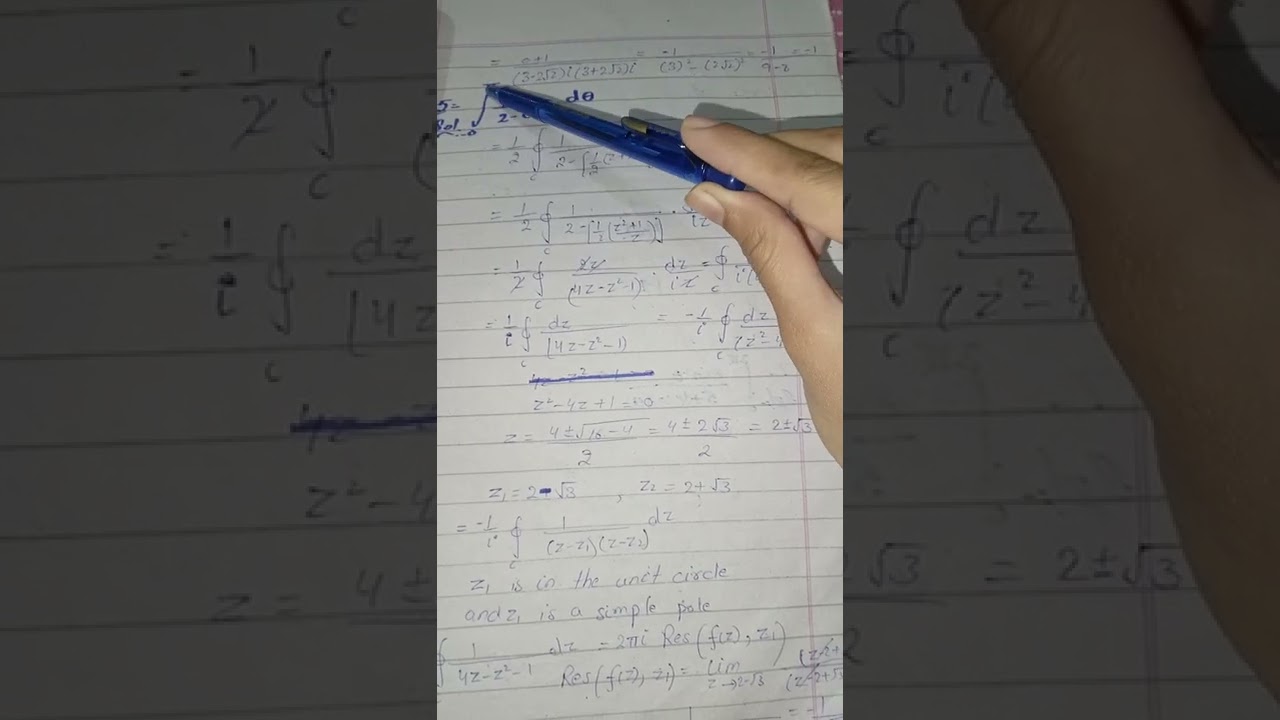 = 0+1 / (3-2√2)i (3+2√2)i = -1 / (3)² - (2√2)² = -1 / 9-8 = -1
5=
Sol ∫ dθ
= 1/2 ∮c 1 / 2-[1/2(z+
= 1/2 ∮c 1 / 2-[1/2(z²+1/z)] ·
= 1/2 ∮c 2z / (4z-z²-1) · dz/iz = ∮c
= 1/i ∮c dz / (4z-z²-1) = -1/i ∮c dz / (z²-4
z²-4z+1=0
z = 4±√16-4 / 2 = 4±2√3 / 2 = 2±√3
z₁=2-√3 , z₂=2+√3
= -1/i ∮c 1 / (z-z₁)(z-z₂) dz
z₁ is in the unit circle
and z₁ is a simple pole
∮ 1 / 4z-z²-1 dz = 2πi Res(f(z), z₁)
Res(f(z), z₁) = lim z→2-√3